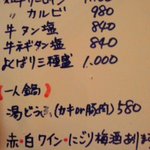 〃 カルビ 980
牛タン塩 840
牛ネギタン塩 840
よくばり三種盛 1.000
【一人鍋】
湯どうふ(カキor豚肉)580
赤・白ワイン・にごり梅酒あります